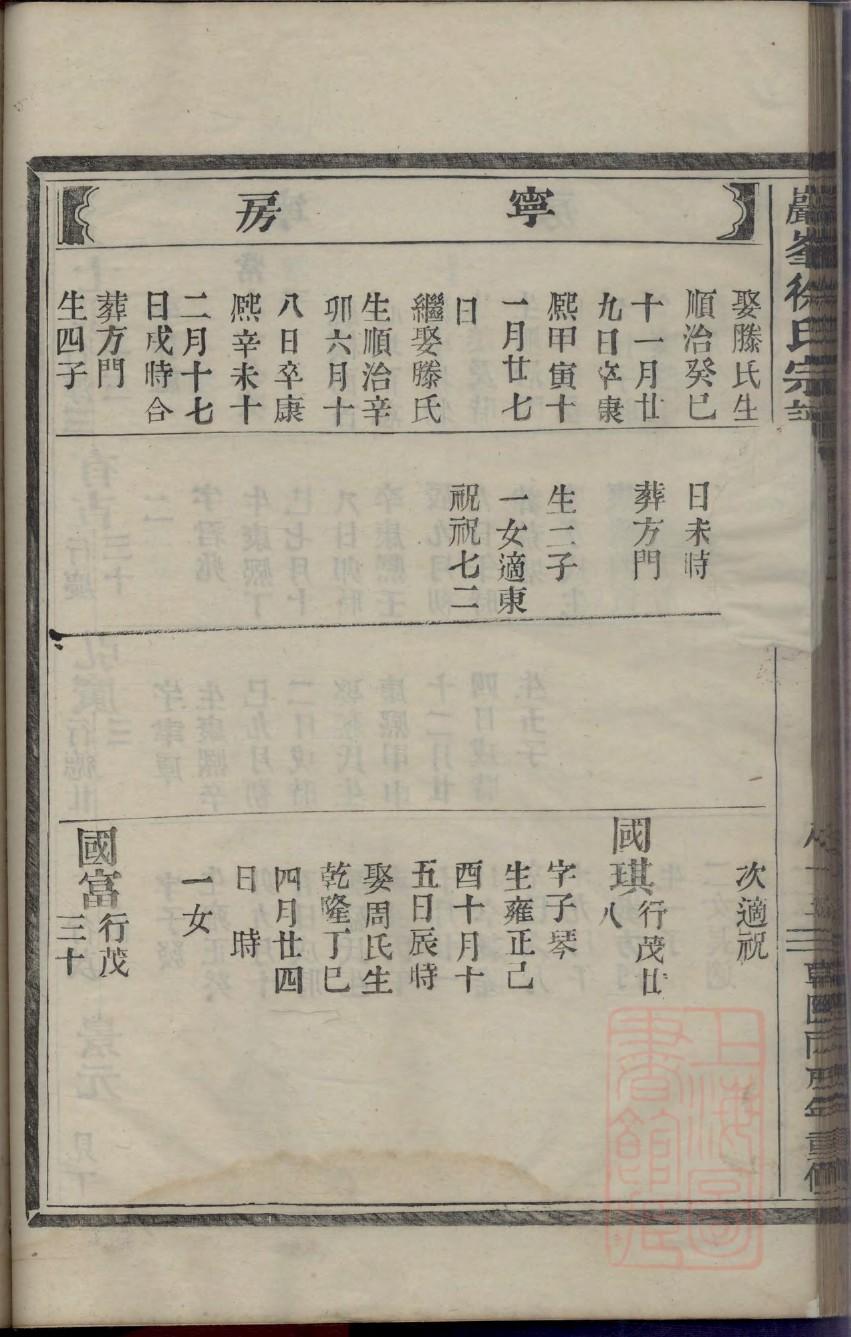 寧房
巖峯徐氏宗
娶滕氏生
順治癸巳
十一月廿
九日卒康
熙甲寅十
一月廿七
日
繼娶滕氏
生順治辛
卯六月十
八日卒康
熙辛未十
二月十七
日戌時合
葬方門
生四子
日未時
葬方門
生二子
一女適東
祝祝七二
次適祝
國琪行茂廿
八
字子琴
生雍正己
酉十月十
五日辰時
娶周氏生
乾隆丁巳
四月廿四
日時
一女
國富行茂
三十
上海圖
書館藏